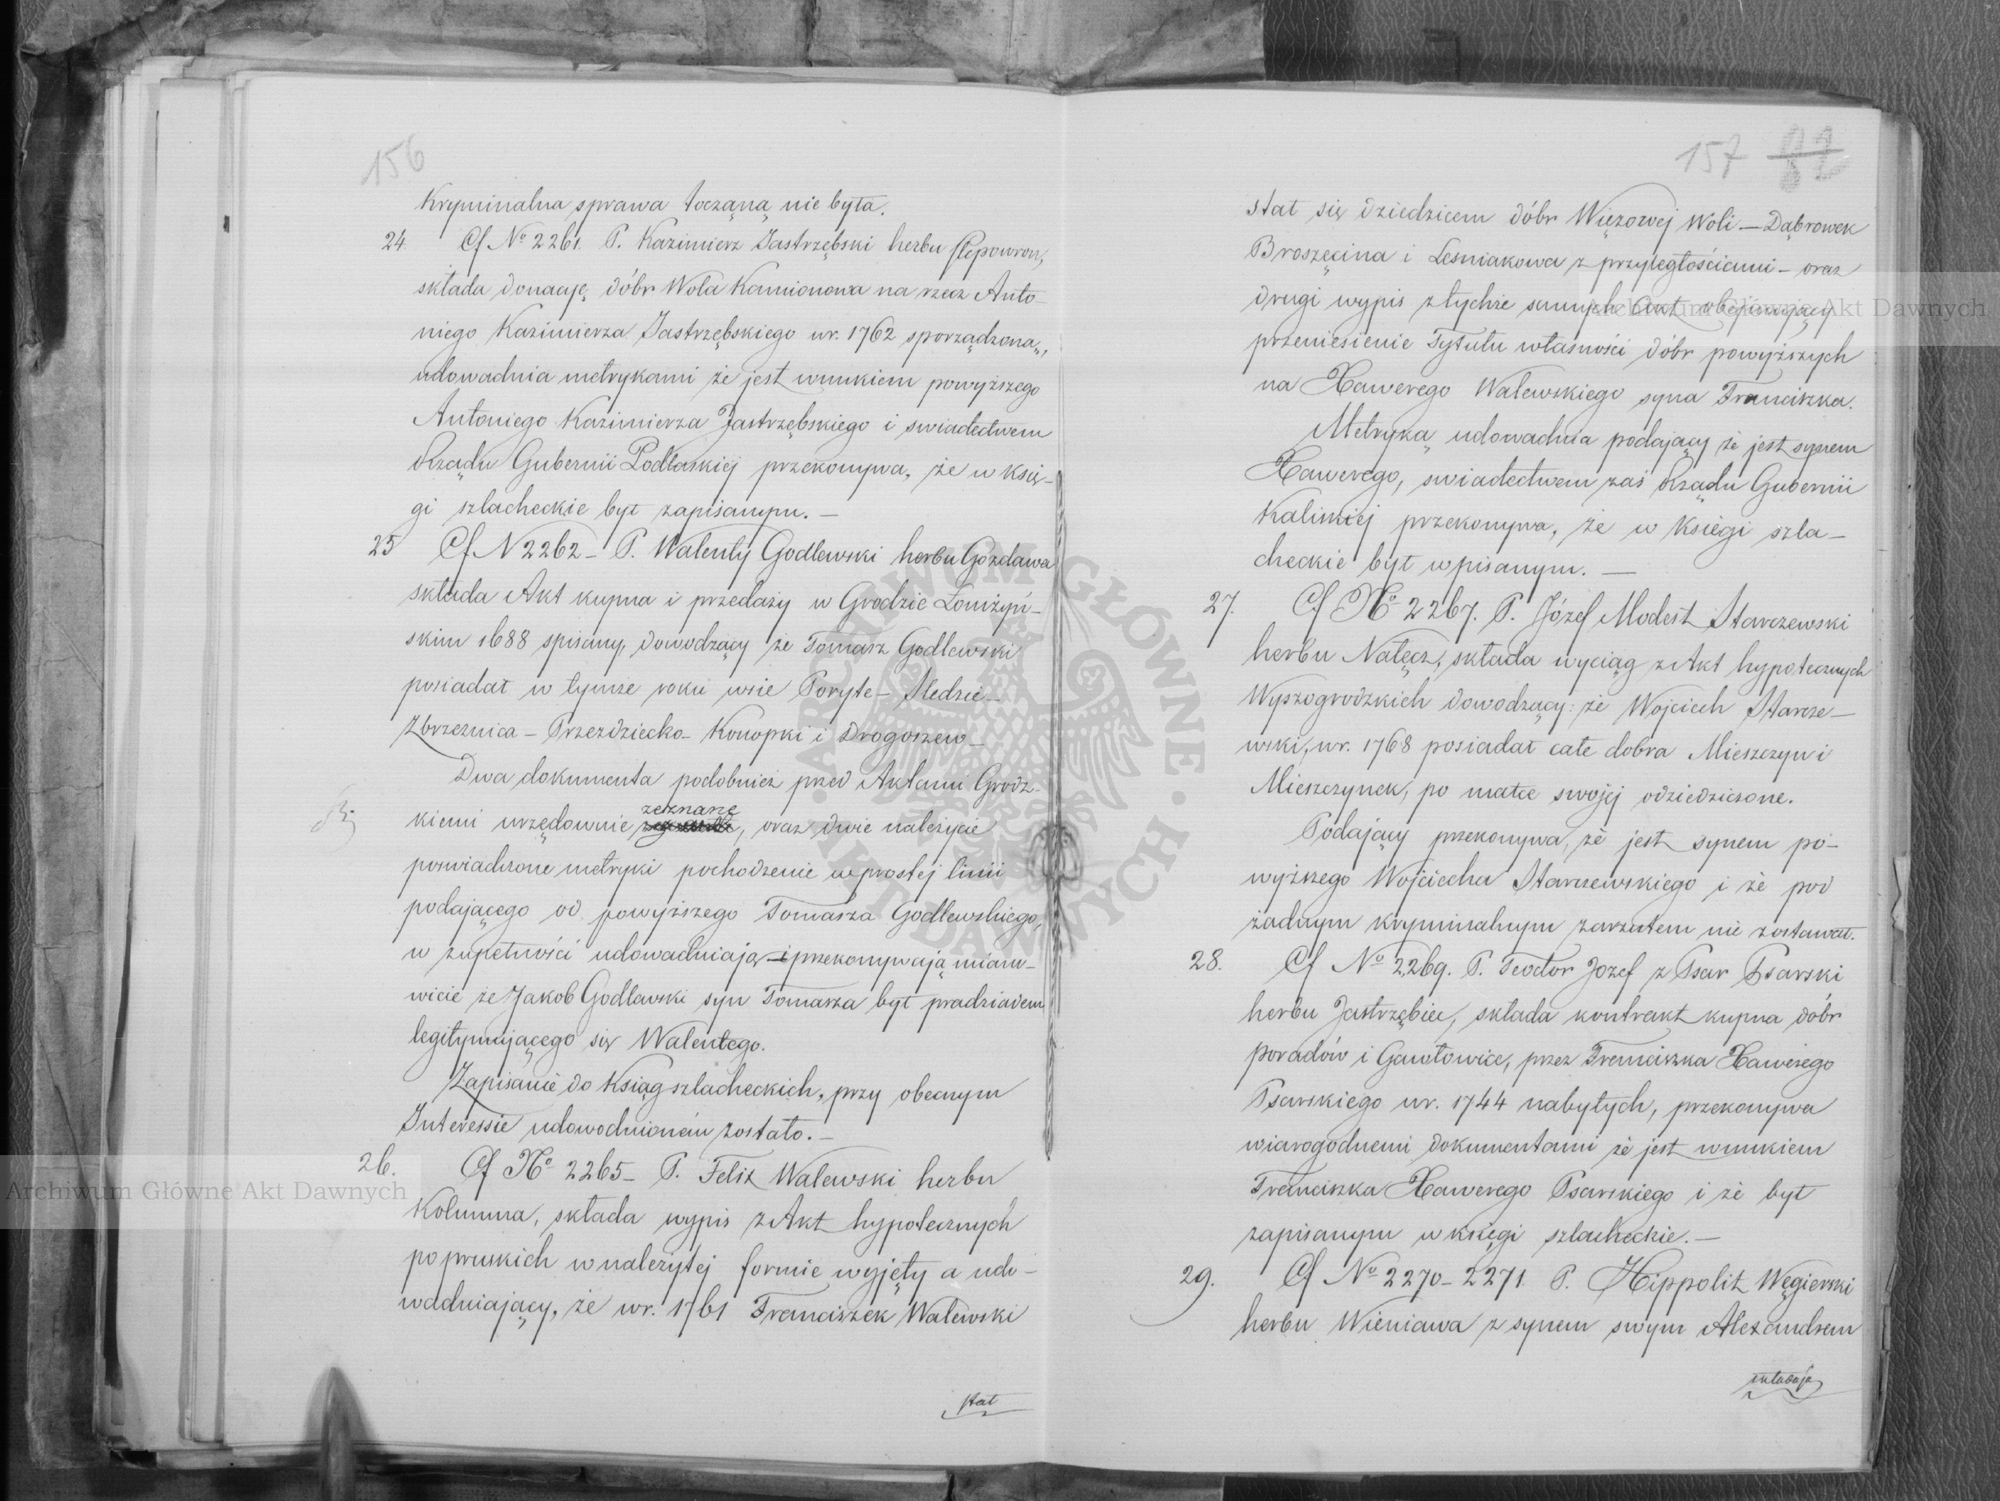 156
Kryminalna sprawa tocząną nie była.
24 Cf Nº 2261. P. Kazimierz Jastrzębski herbu Ślepowron,
składa donację dóbr Wola Kamionowa na rzecz Anto-
niego Kazimierza Jastrzębskiego wr. 1762 sporządzoną,
udowadnia metrykami że jest wnukiem powyższego
Antoniego Kazimierza Jastrzębskiego i swiadectwem
Rządu Gubernii Podlaskiej przekonywa, że w Księ-
gi szlacheckie był zapisanym. —
25 Cf N 2262 – P. Walenty Godlewski herbu Gozdawa
składa Akt kupna i przedaży w Grodzie Łomżyń-
skim 1688 spisany, dowodzący że Tomasz Godlewski
posiadał w tymże roku wsie Poryte – Sledzie –
Zbrzeznica – Przezdziecko – Konopki i Drogoszew –
Dwa dokumenta podobnież przed Aktami Grodz-
kiemi urzędownie zeznane, oraz dwie należycie
poswiadczone metryki pochodzenie w prostej linii
podającego od powyższego Tomasza Godlewskiego,
w zupełności udowadniają i przekonywają miano-
wicie że Jakob Godlewski syn Tomasza był pradziadem
legitymującego się Walentego.
Zapisanie do Ksiąg szlacheckich, przy obecnym
Interessie udowodnioném zostało. –
26. Cf Nº 2265 – P. Felix Walewski herbu
Kolumna, składa wypis z Akt hypotecznych
popruskich w należytej formie wyjęty a udo-
wadniający, że wr. 1761 Franciszek Walewski
stał
157 82
stał się dziedzicem dóbr Więzowej Woli – Dąbrowek
Broszęcina i Lesniakowa z przyległościami – oraz
drugi wypis z tychże samych Akt obejmujący
przeniesienie Tytułu własności dóbr powyższych
na Xawerego Walewskiego syna Franciszka.
Metryką udowadnia podający że jest synem
Xawerego, swiadectwem zaś Rządu Gubernii
Kaliskiej przekonywa, że w Księgi szla-
checkie był wpisanym. —
27. Cf Nº 2267. P. Józef Modest Starczewski
herbu Nałęcz, składa wyciąg z Akt hypotecznych
Wyszogrodzkich dowodzący: że Wojciech Starcze-
wski, wr. 1768 posiadał całe dobra Mieszczyn i
Mieszczynek, po matce swojej odziedziczone.
Podający przekonywa, że jest synem po-
wyższego Wojciecha Starczewskiego i że pod
żadnym kryminalnym zarzutem nie zostawał.
28. Cf Nº 2269. P. Teodor Jozef z Psar Psarski
herbu Jastrzębiec, składa kontrakt kupna dóbr
Poradów i Gawłowice, przez Franciszka Xawerego
Psarskiego wr. 1744 nabytych, przekonywa
wiarogodnemi dokumentami że jest wnukiem
Franciszka Xawerego Psarskiego i że był
zapisanym w księgi szlacheckie. —
29. Cf Nº 2270 – 2271. P. Hippolit Węgierski
herbu Wieniawa z synem swym Alexandrem
składają
Archiwum Główne Akt Dawnych
Archiwum Główne Akt Dawnych
ARCHIWUM GŁÓWNE · AKT DAWNYCH ·